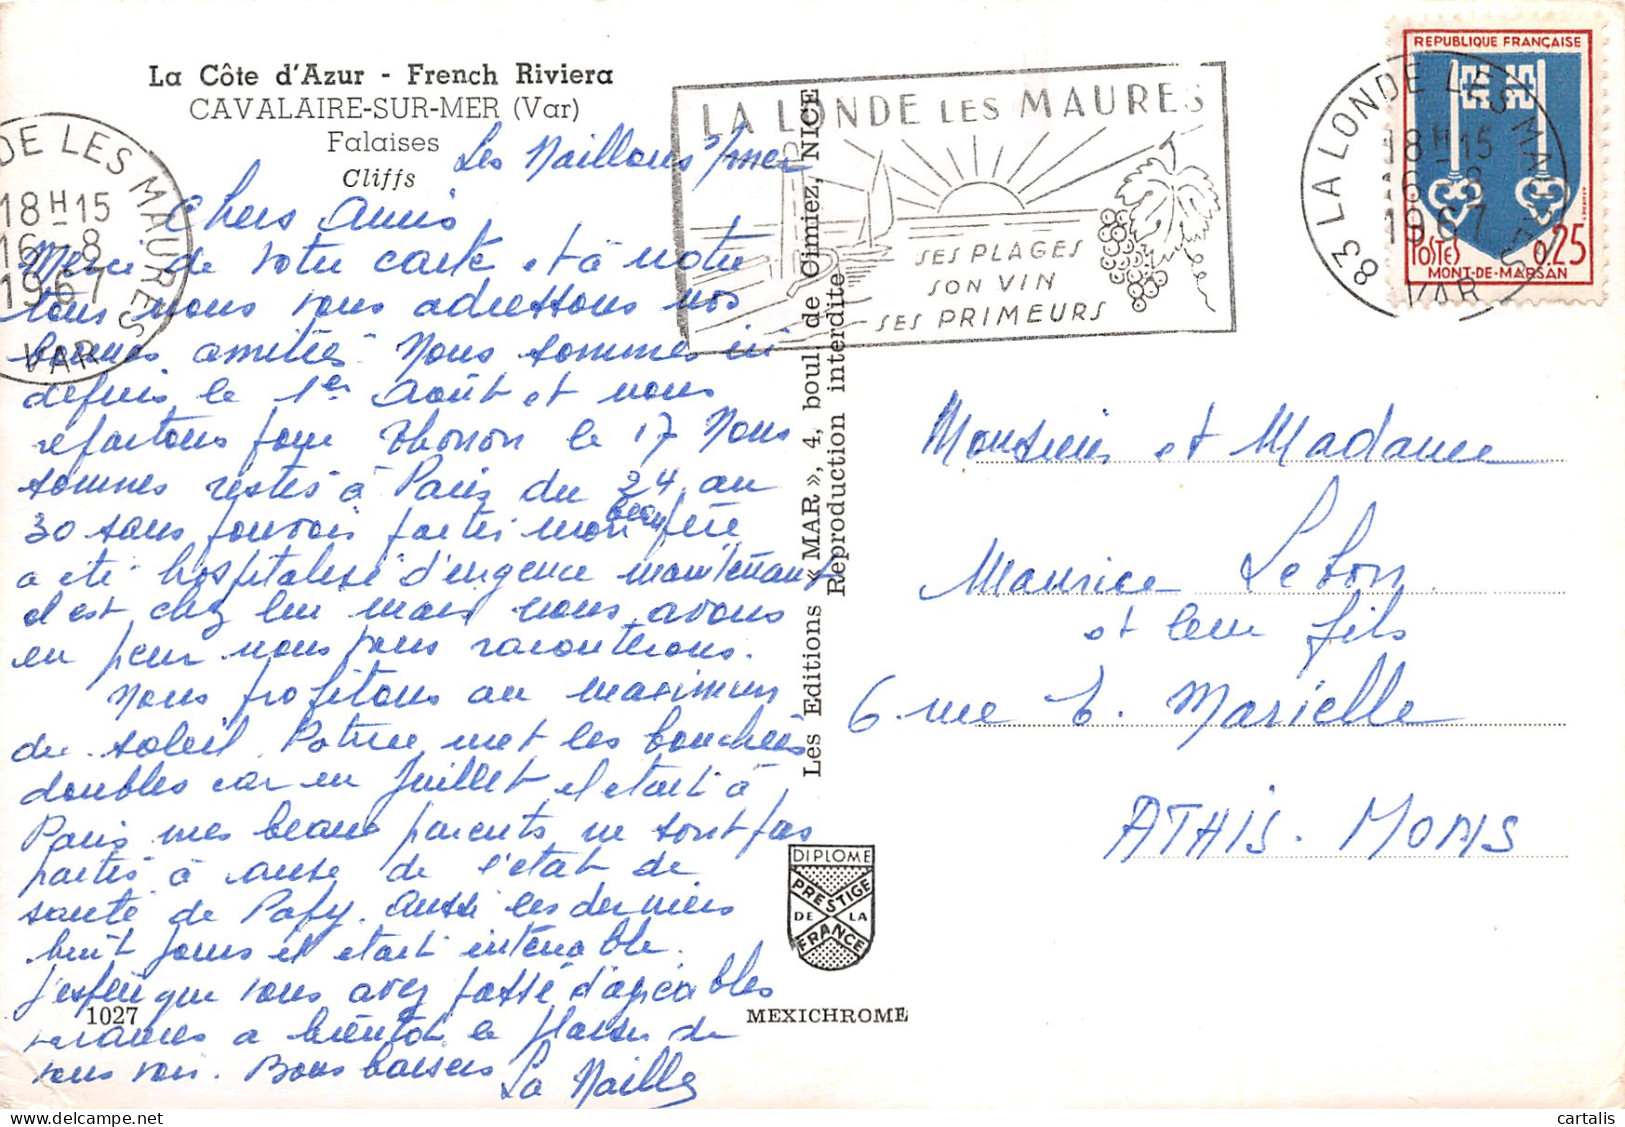 La Côte d'Azur - French Riviera
CAVALAIRE-SUR-MER (Var)
Falaises
Cliffs
1027
Les Editions « MAR », 4, boul. de Cimiez, NICE
Reproduction interdite
DIPLOME
PRESTIGE
DE LA
FRANCE
MEXICHROME
DE LES MAURES
18H15
16-8
1967
VAR
LA LONDE LES MAURES
SES PLAGES
SON VIN
SES PRIMEURS
83 LA LONDE LES MAURES
18H15
16-8
1967
VAR
REPUBLIQUE FRANÇAISE
POSTES 0,25
MONT-DE-MARSAN
Les s/mer
Chers Amis
Merci de votre carte et à notre
tour nous vous adressons nos
bonnes amitiés Nous sommes ici
depuis le 1er Août et nous
repartons pour Thonon le 17 Nous
sommes restés à Paris du 24 au
30 sans pouvoir partir mon beau père
a été hospitalisé d'urgence maintenant
il est chez lui mais nous avons
eu peur nous vous raconterons.
Nous profitons au maximum
du soleil. Patrice met les bouchées
doubles car en Juillet il était à
Paris mes beaux parents ne sont pas
partis à cause de l'état de
santé de Papy. Aussi les derniers
huit jours il était intenable.
J'espère que vous avez passé d'agréables
vacances a bientôt le plaisir de
vous voir. Bons baisers
Monsieur et Madame
Maurice Lebon
et leur fils
6 rue E. Marielle
ATHIS. MONS
cartalis